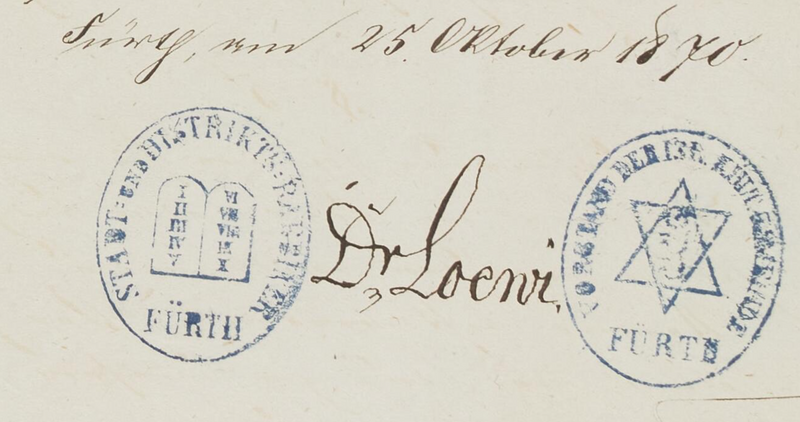 Fürth, am 25. Oktober 1870.
STADT- UND DISTRIKTS-RABBINER
I
II
III
IV
V
VI
VII
VIII
IX
X
FÜRTH
Dr Loewi
VORSTAND DER ISR. KULTUSGEMEINDE
FÜRTH